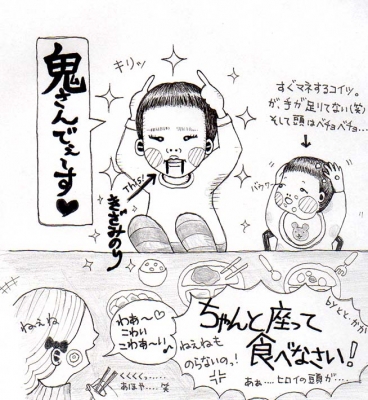 鬼さんでぇーす♥
キリッ
This!
きざみのり
すぐマネするコイツ。
が、手が足りてない(笑)
そして頭はベチョベチョ…
バウワー
by とと・かか
ちゃんと座って
食べなさい！
ねぇねも
のらないのっ！
わあ〜♡
こわい
こわぁ〜い♪
ねぇね
くくくっ……
あほや……笑
あぁ……ヒロイの頭が……